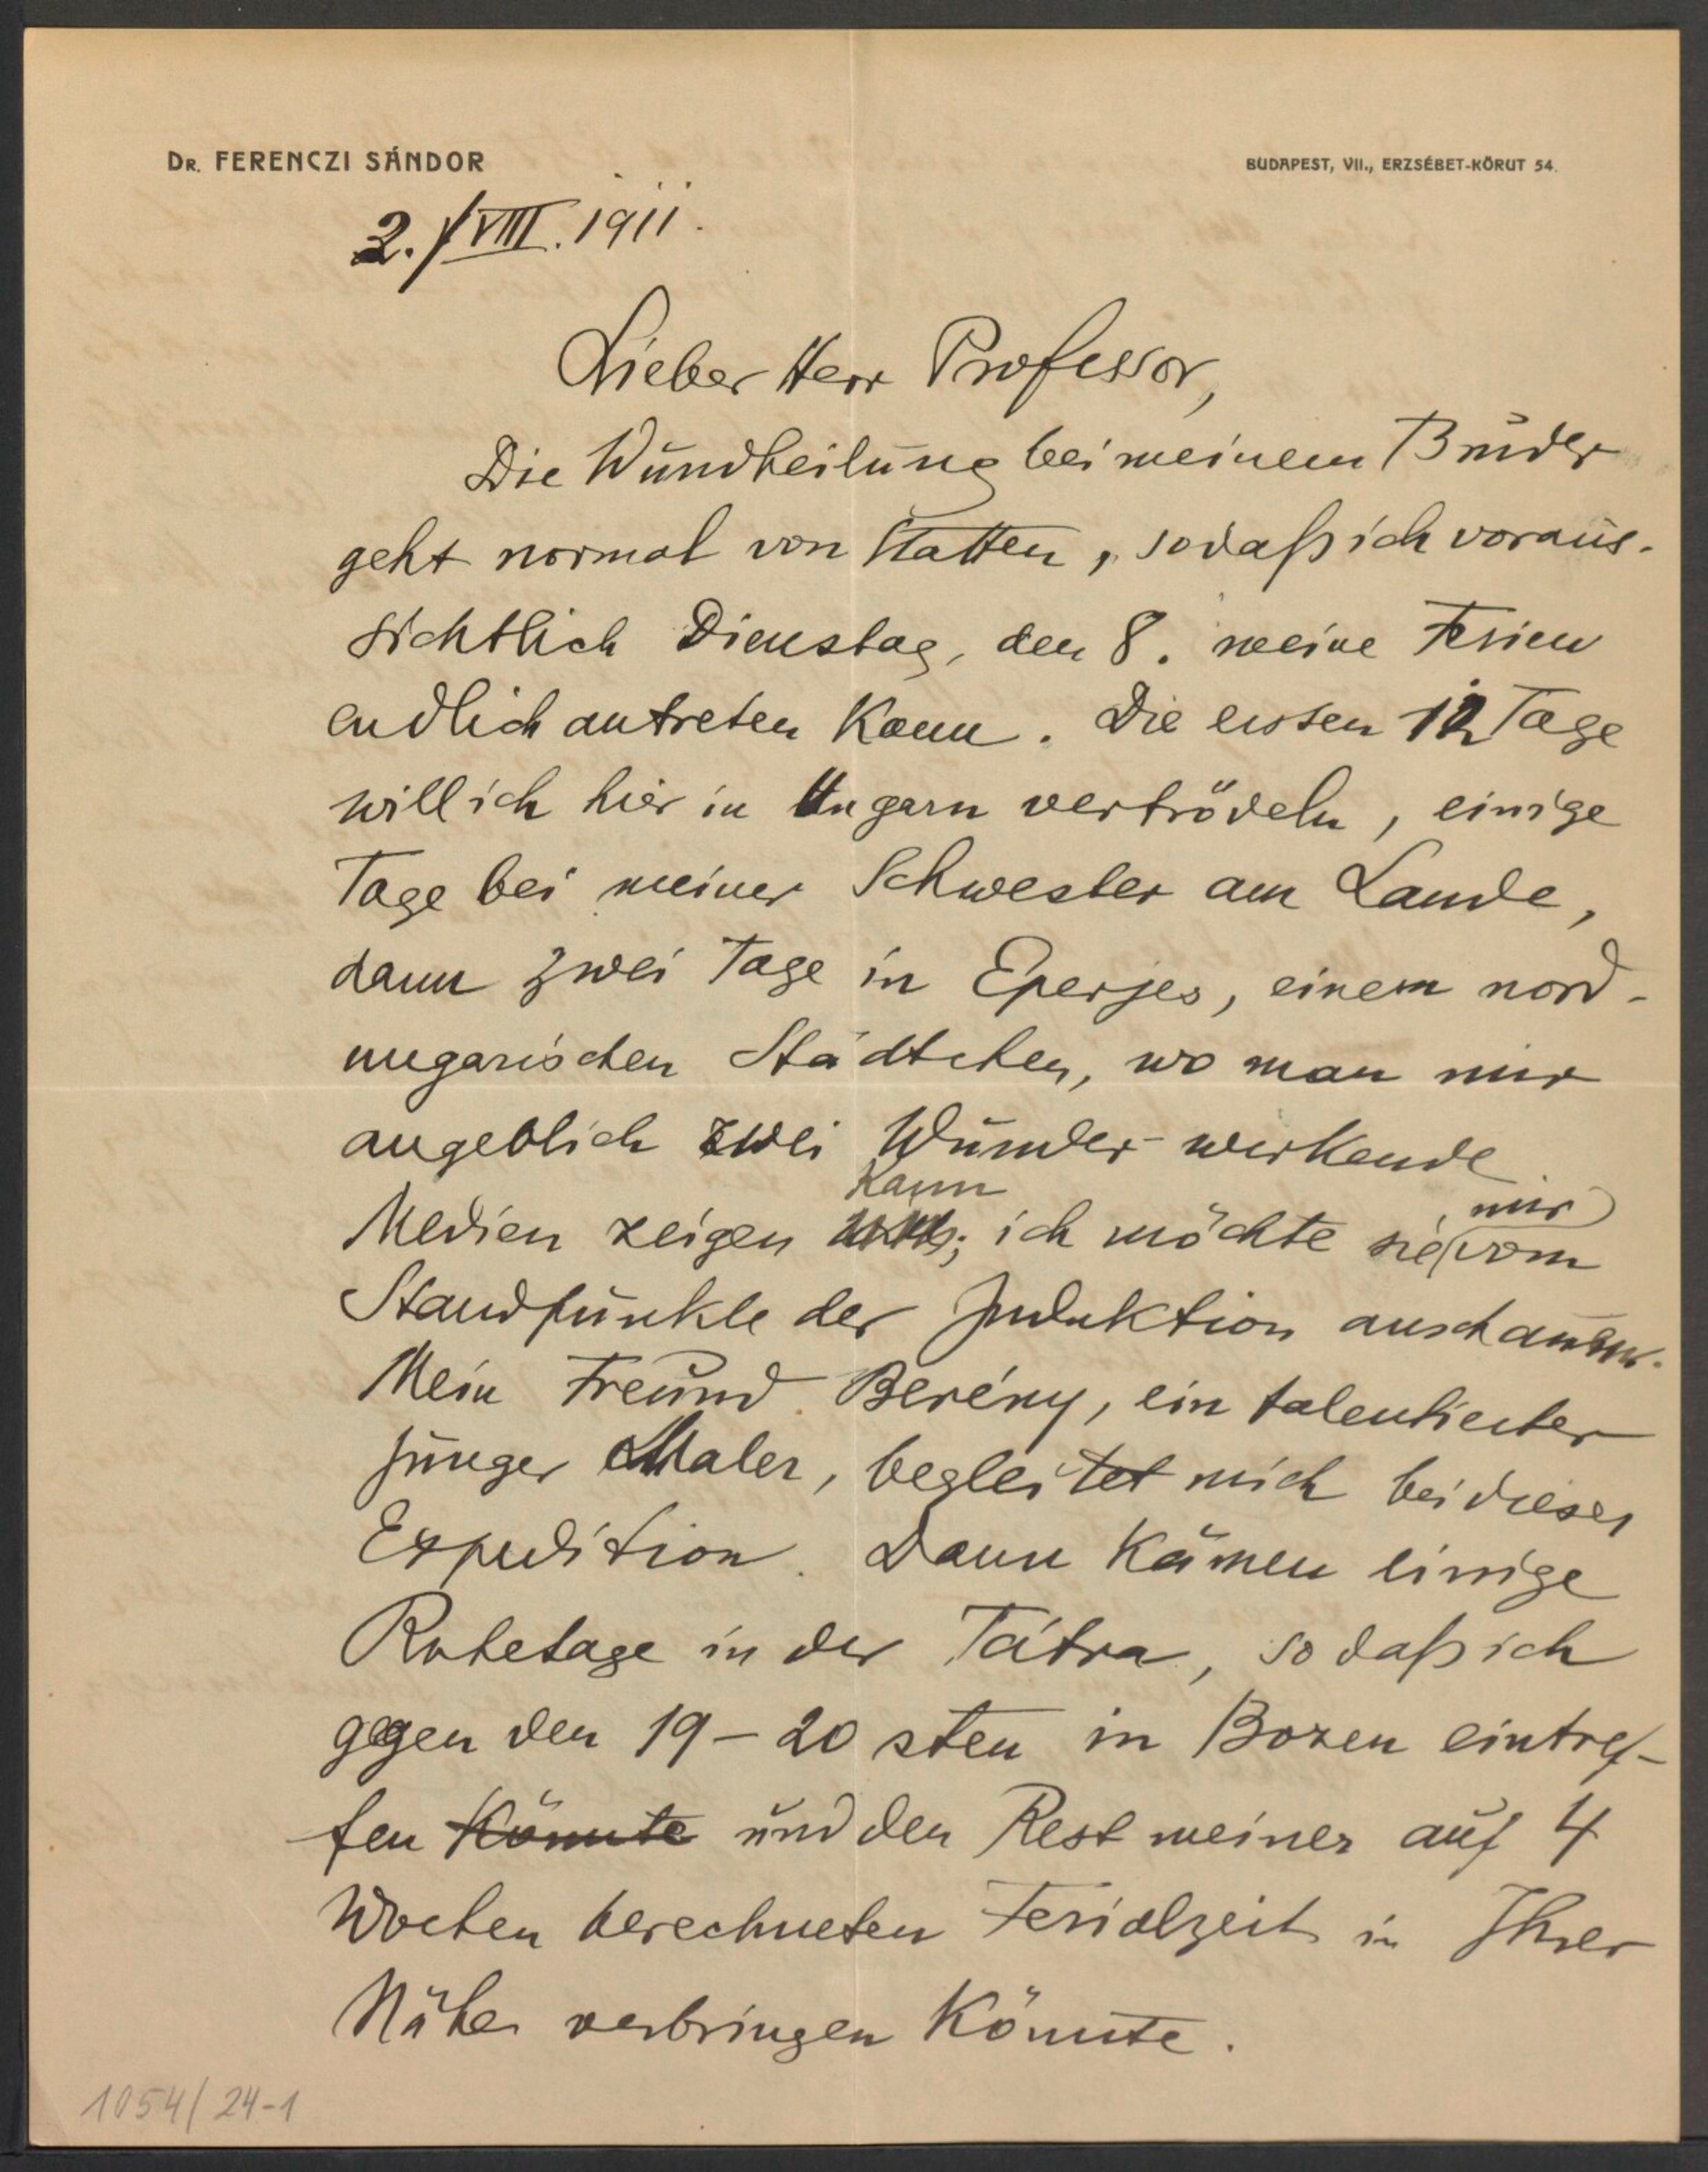 DR. FERENCZI SÁNDOR
BUDAPEST, VII., ERZSÉBET-KÖRUT 54.
2./VIII. 1911.
Lieber Herr Professor,
Die Wundheilung bei meinem Bruder
geht normal von Statten, sodaß ich voraus-
sichtlich Dienstag, den 8. meine Ferien
endlich antreten kann. Die ersten 12 Tage
will ich hier in Ungarn vertrödeln, einige
Tage bei meiner Schwester am Lande,
dann zwei Tage in Eperjes, einem nord-
ungarischen Städtchen, wo man mir
angeblich zwei Wunder-wirkende
Medien zeigen kann; ich möchte sie mir vom
Standpunkte der Induktion anschauen.
Mein Freund Berény, ein talentierter
junger Maler, begleitet mich bei dieser
Expedition. Dann kämen einige
Ruhetage in der Tátra, sodaß ich
gegen den 19-20 sten in Bozen eintref-
fen könnte und den Rest meiner auf 4
Wochen berechneten Ferialzeit in Ihrer
Nähe verbringen könnte.
1054/24-1